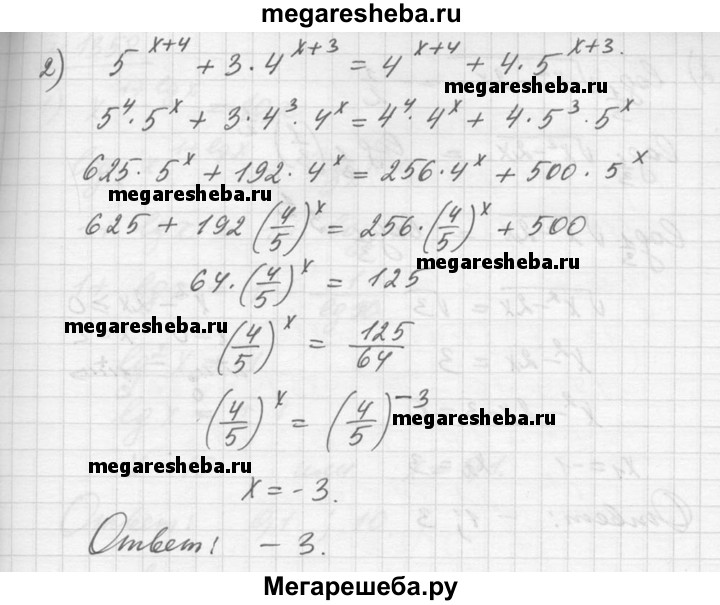 megaresheba.ru
2) 5^{x+4} + 3·4^{x+3} = 4^{x+4} + 4·5^{x+3}.
megaresheba.ru
5^4·5^x + 3·4^3·4^x = 4^4·4^x + 4·5^3·5^x
625·5^x + 192·4^x = 256·4^x + 500·5^x
megaresheba.ru
625 + 192(4/5)^x = 256·(4/5)^x + 500
megaresheba.ru
64·(4/5)^x = 125
megaresheba.ru
(4/5)^x = 125/64
(4/5)^x = (4/5)^{-3}
megaresheba.ru
megaresheba.ru
x = -3.
Ответ: -3.
Мегарешеба.ру